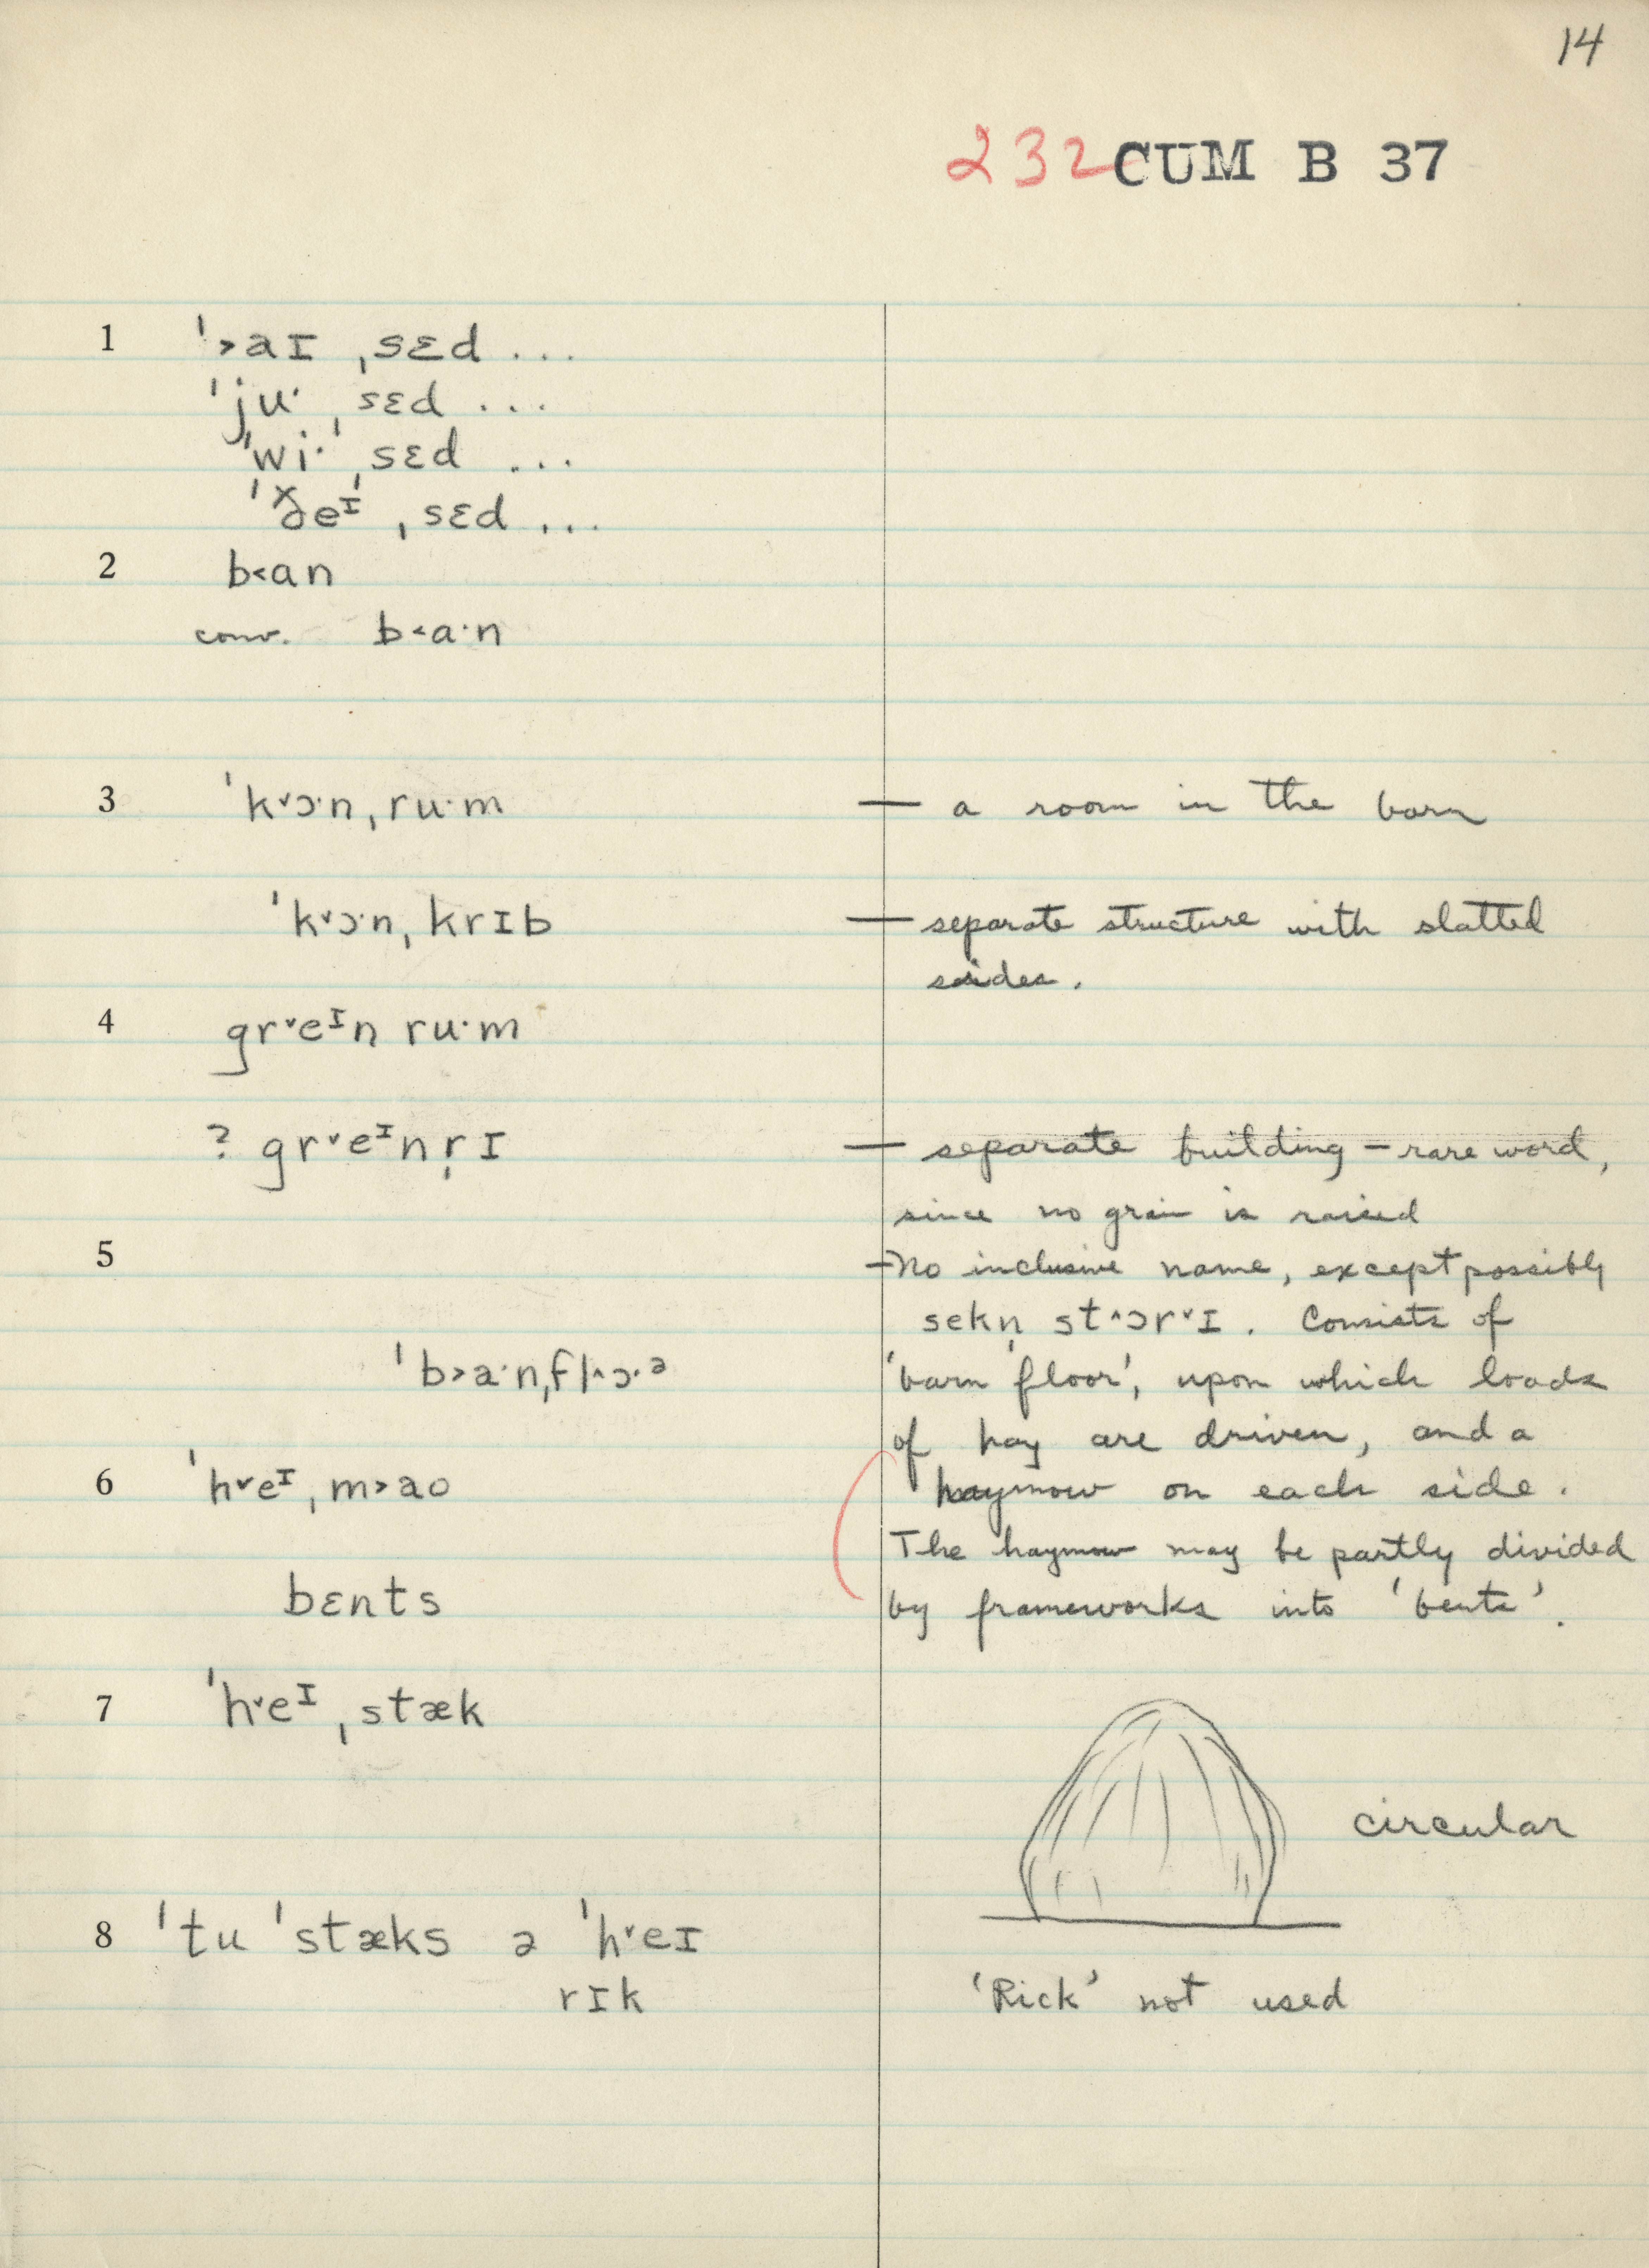 14
232 CUM B 37
1 ˈ˃aɪ ˌsɛd ...
ˈjuˑ ˌsɛd ...
ˈwiˑ ˌsɛd ...
ˈðeᴵ ˌsɛd ...
2 b˂an
conv. b˂aˑn
3 ˈk˅ɔˑnˌruˑm — a room in the barn
ˈk˅ɔˑnˌkrɪb — separate structure with slatted
sides.
4 gr˅eᴵn ruˑm
? gr˅eᴵnr̩ɪ — separate building – rare word,
since no grain is raised
5 – No inclusive name, except possibly
sekn̩ st˄ɔr˅ɪ. Consists of
ˈb˃aˑnˌfl˄ɔˑᵊ 'barn floor', upon which loads
of hay are driven, and a
6 ˈh˅eᴵˌm˃ao haymow on each side.
The haymow may be partly divided
bɛnts by frameworks into 'bents'.
7 ˈh˅eᴵˌstæk
circular
8 ˈtu ˈstæks ə ˈh˅eɪ
rɪk 'Rick' not used